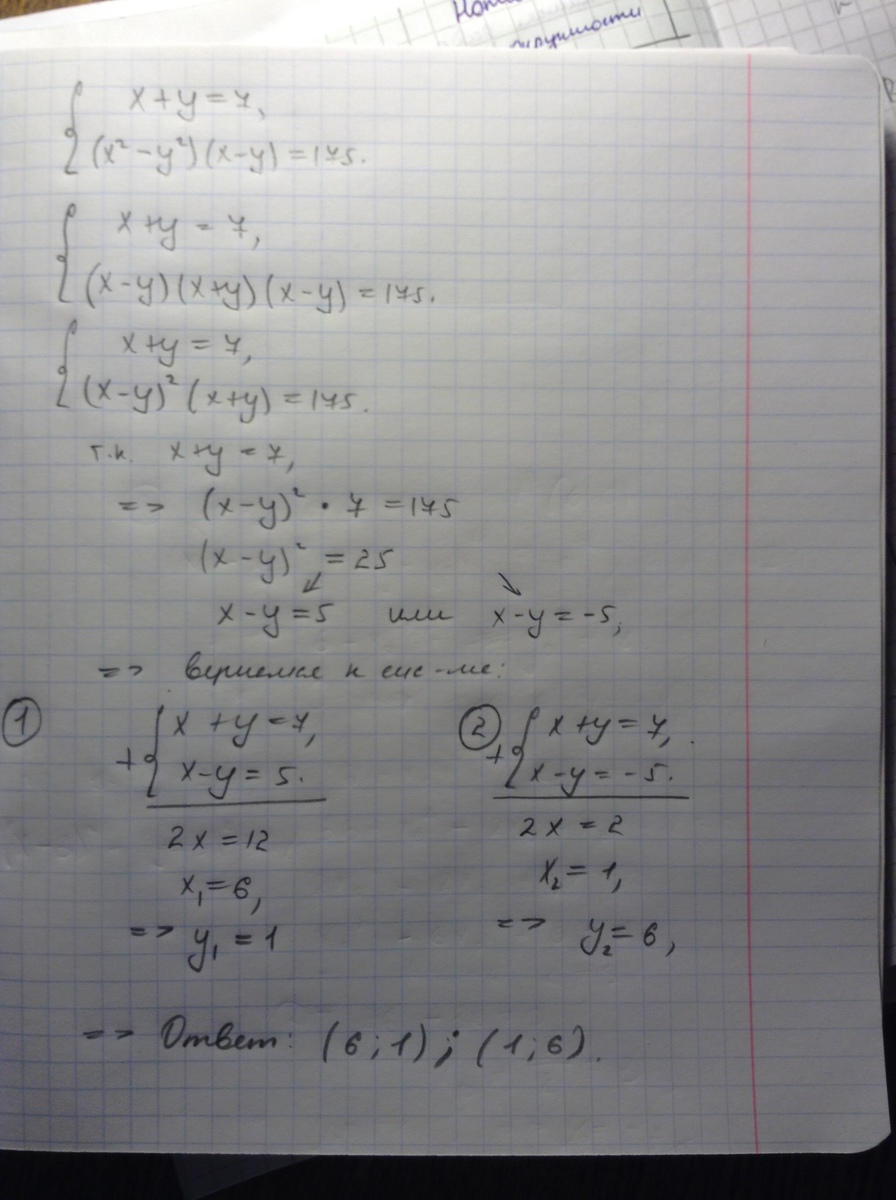 окружности
{ x + y = 7,
(x² - y²)(x - y) = 175.
{ x + y = 7,
(x - y)(x + y)(x - y) = 175.
{ x + y = 7,
(x - y)² (x + y) = 175.
т.к. x + y = 7,
=> (x - y)² • 7 = 175
(x - y)² = 25
↙ ↘
x - y = 5 или x - y = -5,
=> вернемся к сис-ме:
① + { x + y = 7,
x - y = 5.
2x = 12
x₁ = 6,
=> y₁ = 1
② + { x + y = 7,
x - y = -5.
2x = 2
x₂ = 1,
=> y₂ = 6,
=> Ответ: (6; 1); (1; 6).